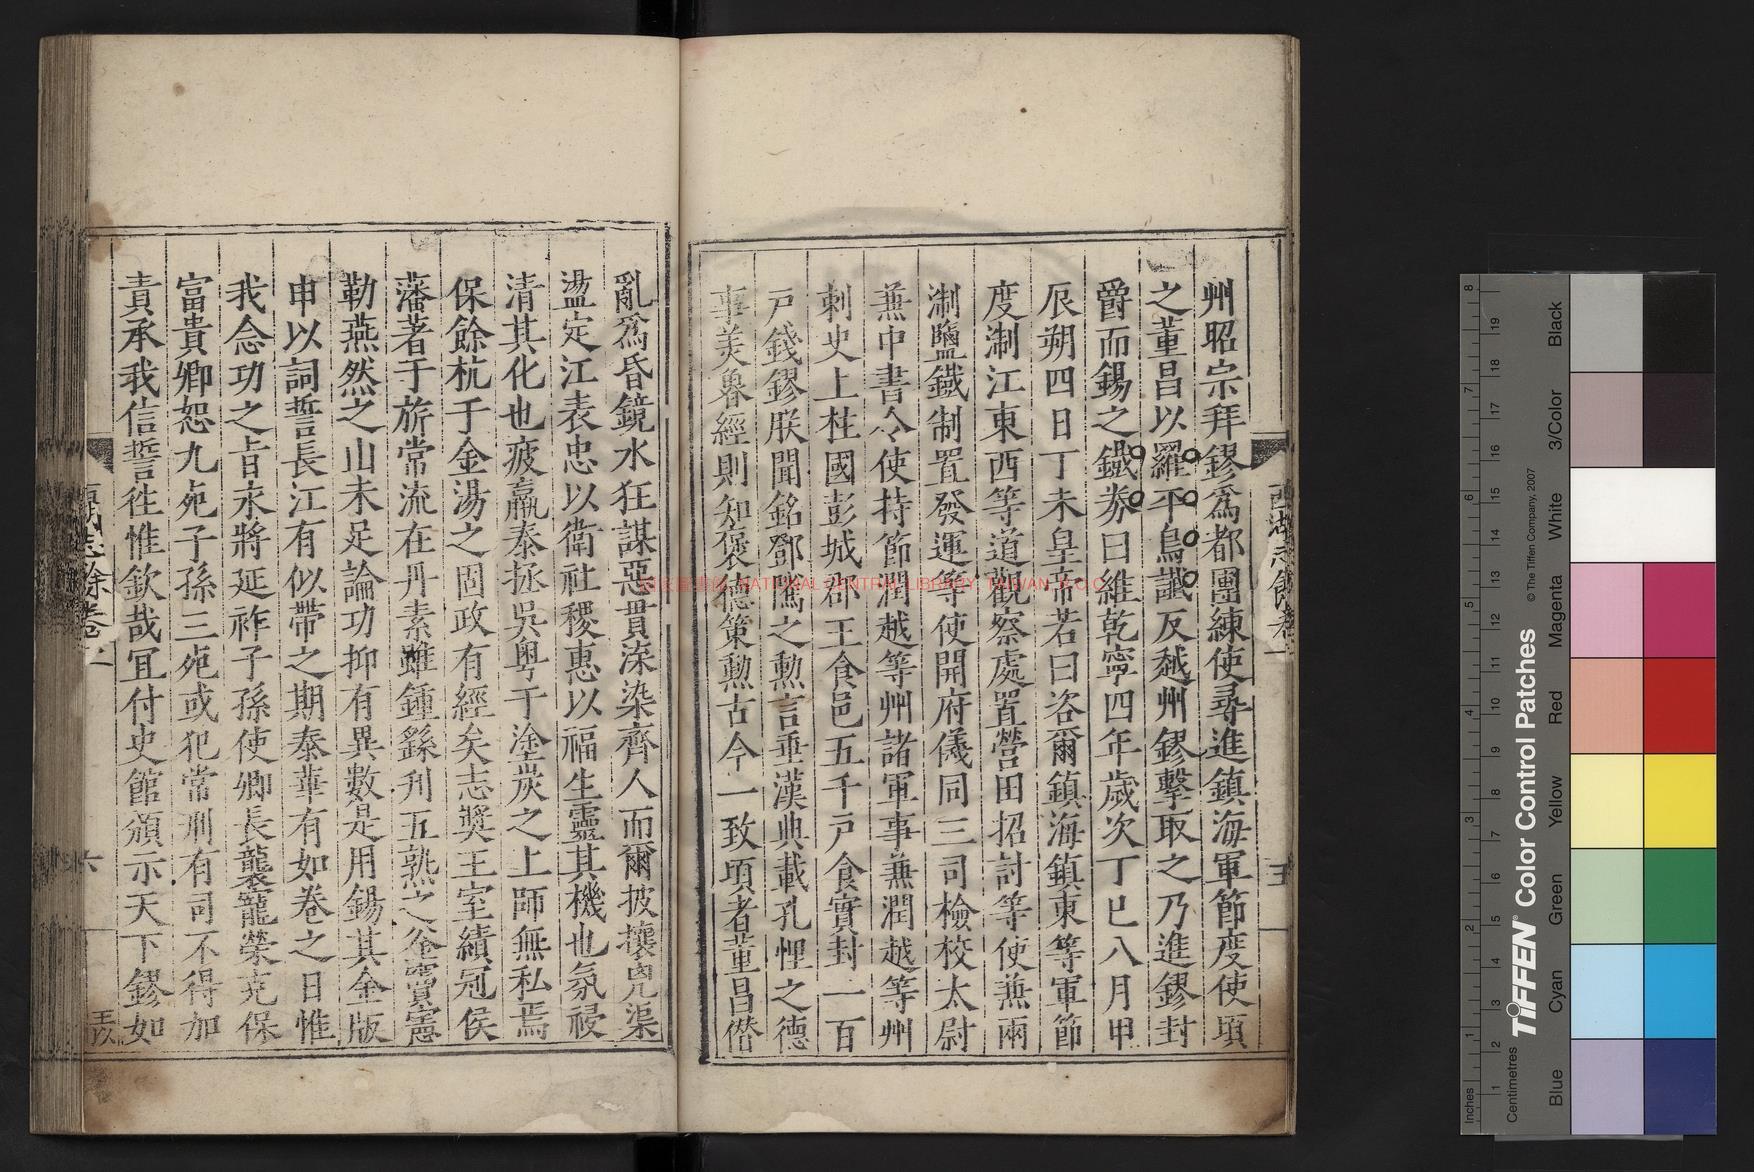 州昭宗拜鏐爲都團練使尋進鎮海軍節度使頃
之董昌以羅平鳥讖反越州鏐擊取之乃進鏐封
爵而錫之鐵券曰維乾寧四年歲次丁巳八月甲
辰朔四日丁未皇帝若曰咨爾鎮海鎮東等軍節
度浙江東西等道觀察處置營田招討等使兼兩
浙鹽鐵制置發運等使開府儀同三司檢校太尉
兼中書令使持節潤越等州諸軍事兼潤越等州
刺史上柱國彭城郡王食邑五千戶食實封一百
戶錢鏐朕聞銘鄧隲之勲言垂漢典載孔悝之德
事美魯經則知褒德策勲古今一致頃者董昌僣
亂爲昏鏡水狂謀惡貫渫染齊人而爾披攘兇渠
盪定江表忠以衛社稷惠以福生靈其機也氛祲
清其化也疲羸泰拯吳粤于塗炭之上師無私焉
保餘杭于金湯之固政有經矣志奬王室績冠侯
藩著于旂常流在丹素雖鍾繇刋五熟之釜竇憲
勒燕然之山未足論功抑有異數是用錫其金版
申以詞誓長江有似帶之期泰華有如卷之日惟
我念功之㫖永將延祚子孫使卿長襲寵榮克保
富貴卿恕九死子孫三死或犯常刑有司不得加
責承我信誓徃惟欽哉冝付史館頒示天下鏐如
西湖志餘卷一
五
志餘卷之
六
NATIONAL CENTRAL LIBRARY, TAIWAN, R.O.C.
TIFFEN® Color Control Patches
© The Tiffen Company, 2007
Inches
Centimetres
Blue
Cyan
Green
Yellow
Red
Magenta
White
3/Color
Black